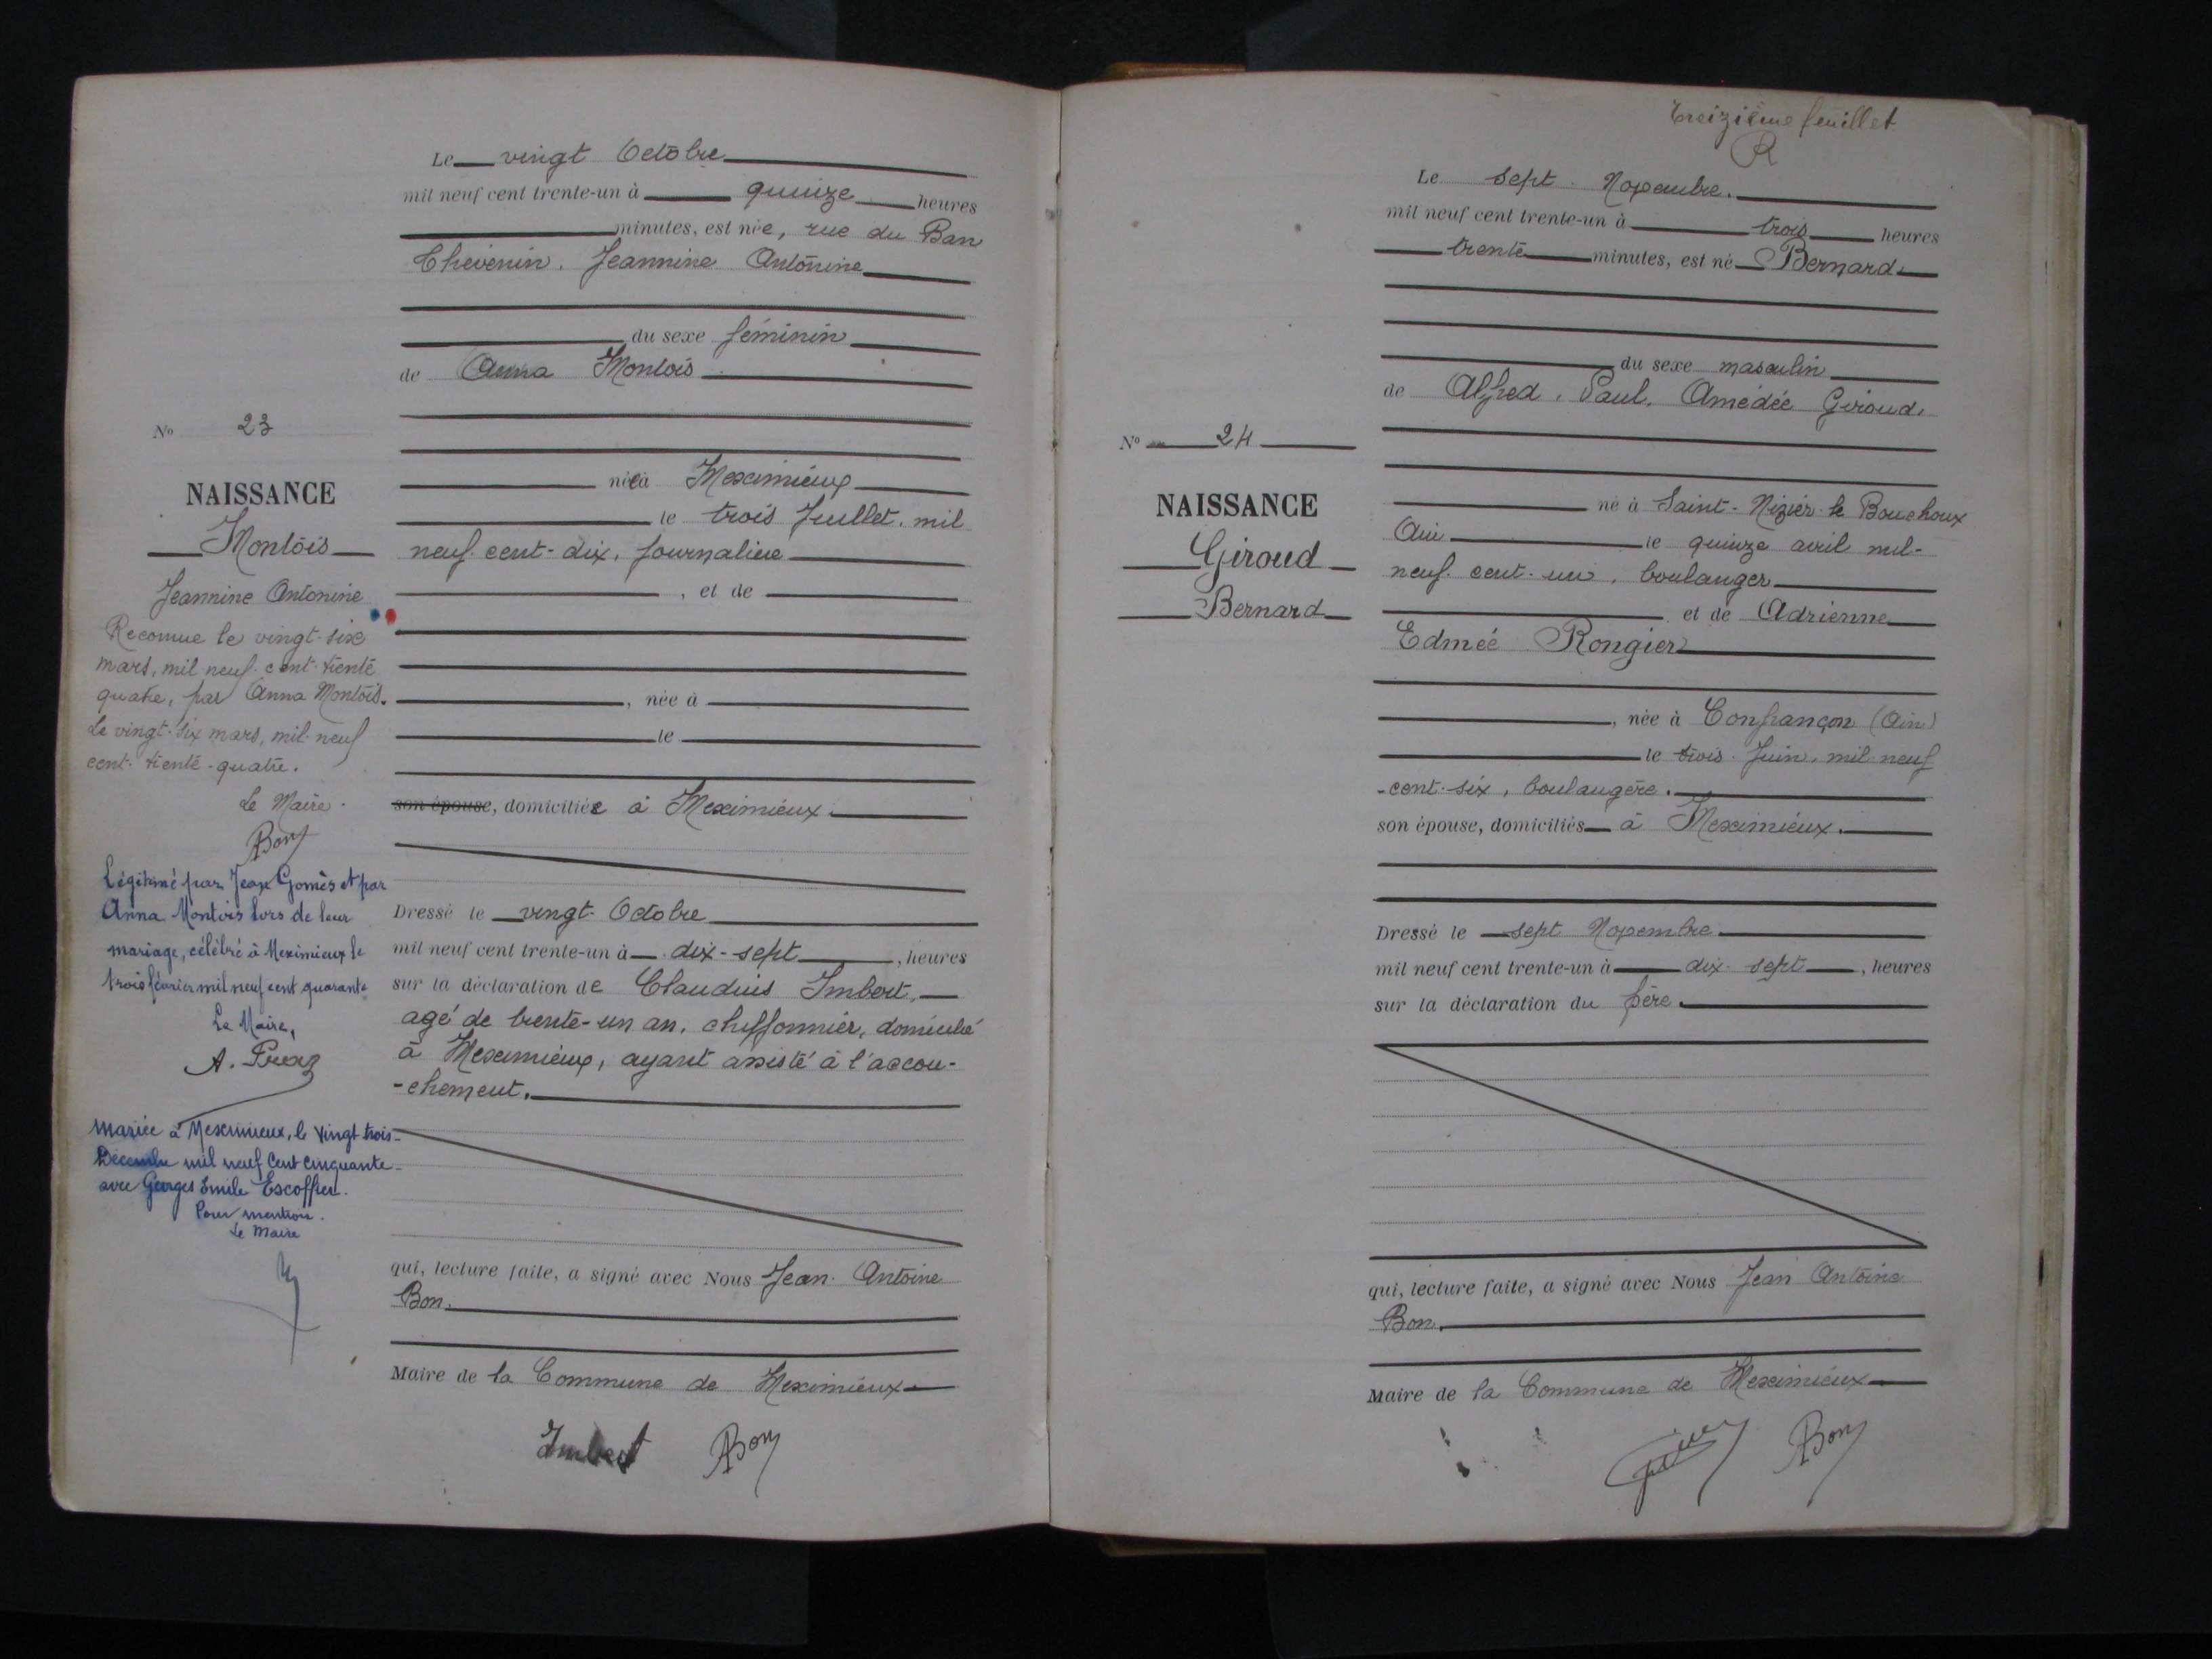 Le vingt Octobre
mil neuf cent trente-un à quinze heures
minutes, est née, rue du Ban
Chévenin. Jeannine Antonine
du sexe féminin
de Anna Montois
née à Meximieux
le trois Juillet, mil
neuf cent-dix, journalière
, et de
, née à
le
son épouse, domiciliée à Meximieux.
Dressé le vingt Octobre
mil neuf cent trente-un à dix-sept, heures
sur la déclaration de Claudius Imbert,
agé de trente-un an, chiffonnier, domicilié
à Meximieux, ayant assisté à l'accou-
-chement.
qui, lecture faite, a signé avec Nous Jean Antoine
Bon.
Maire de la Commune de Meximieux
Imbert Bon
No 23
NAISSANCE
Montois
Jeannine Antonine
Reconnue le vingt-six
mars, mil neuf cent-trente
quatre, par Anna Montois.
Le vingt-six mars, mil-neuf
cent-trente-quatre.
Le Maire.
Bon
Légitimé par Jean Gomès et par
Anna Montois lors de leur
mariage, célébré à Meximieux le
trois février mil neuf cent quarante
Le Maire,
A.
Mariée à Meximieux, le vingt trois
Décembre mil neuf cent cinquante
avec Georges Emile Escoffier.
Pour mention.
Le Maire
treizième feuillet
R
Le sept Novembre.
mil neuf cent trente-un à trois heures
trente minutes, est né Bernard
du sexe masculin
de Alfred, Paul, Amédée Giroud,
né à Saint-Nizier-le Bouchoux
Ain le quinze avril mil-
neuf cent-un, boulanger
et de Adrienne
Edmée Rongier
, née à Confrançon (Ain)
le trois Juin, mil neuf
-cent-six, boulangère.
son épouse, domiciliés à Meximieux.
Dressé le sept Novembre
mil neuf cent trente-un à dix-sept, heures
sur la déclaration du père.
qui, lecture faite, a signé avec Nous Jean Antoine
Bon.
Maire de la Commune de Meximieux
Bon
No 24
NAISSANCE
Giroud
Bernard